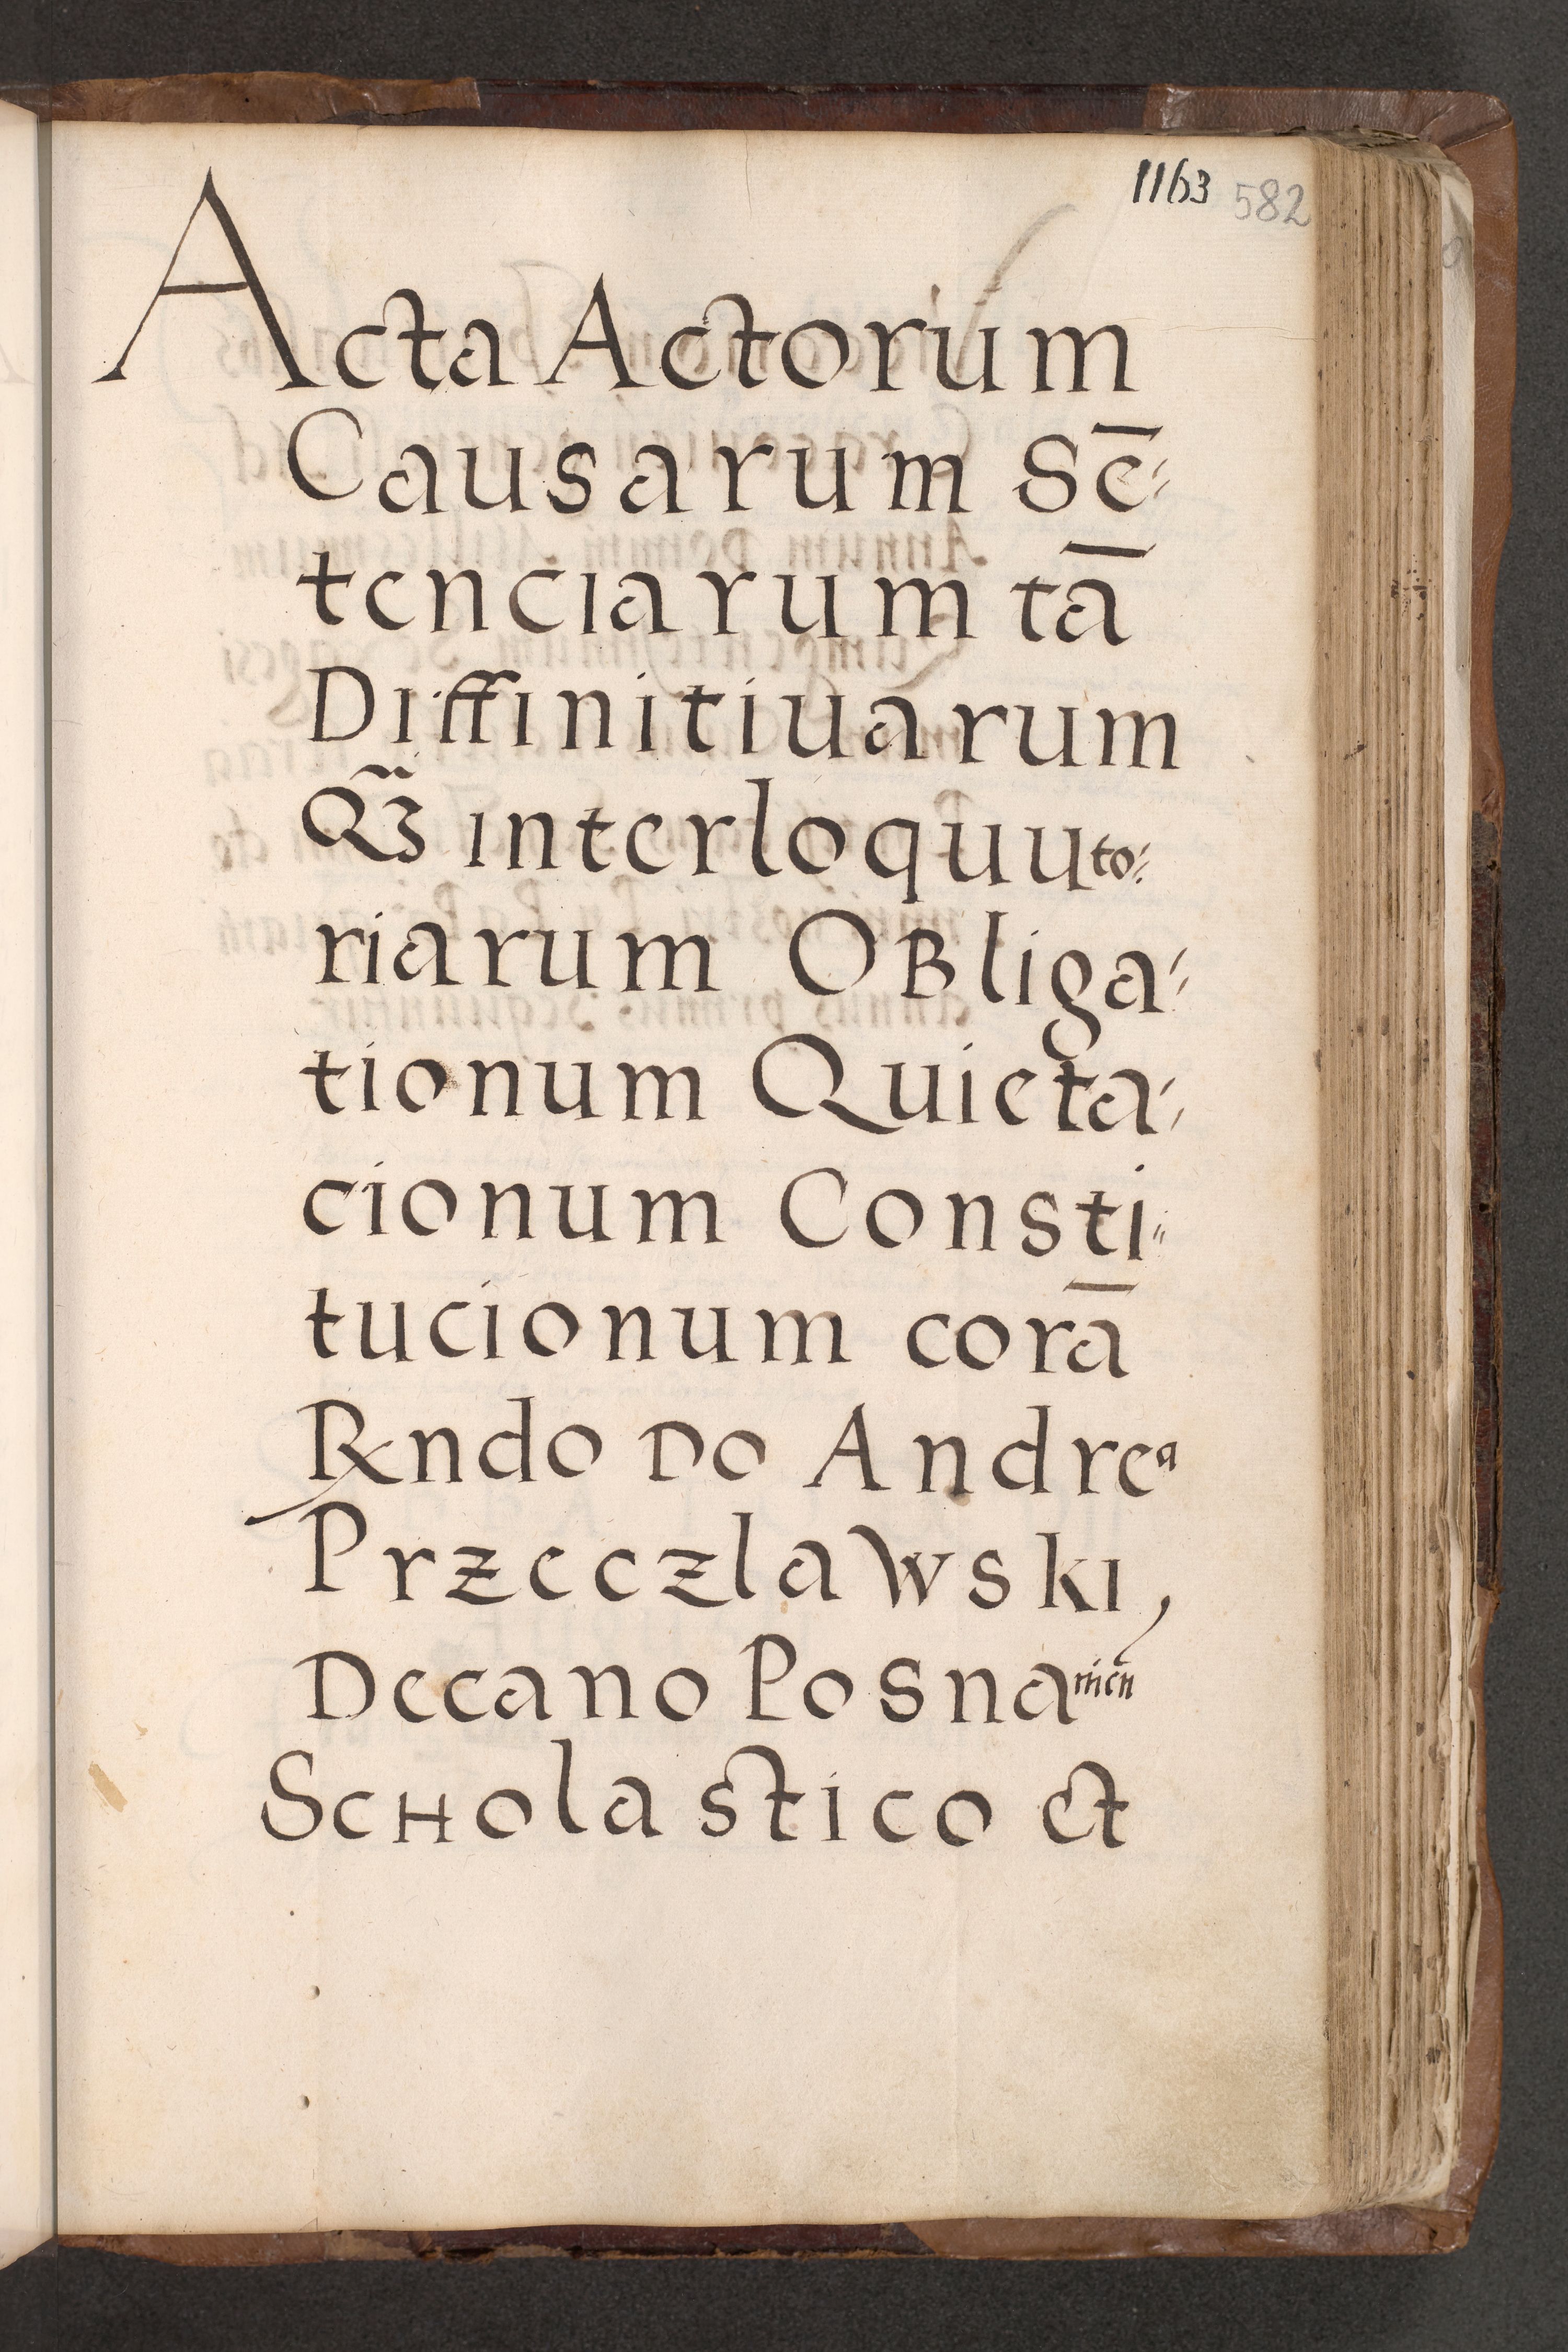 1163 582
Acta Actorum
Causarum Sē-
tenciarum tā
Diffinitiuarum
Qꝫ interloquuto-
riarum OBliga-
tionum Quieta-
cionum Consti-
tucionum corā
Rndo Do Andrea
Przeczlawski,
Decano Posnanien̄
Scholastico et